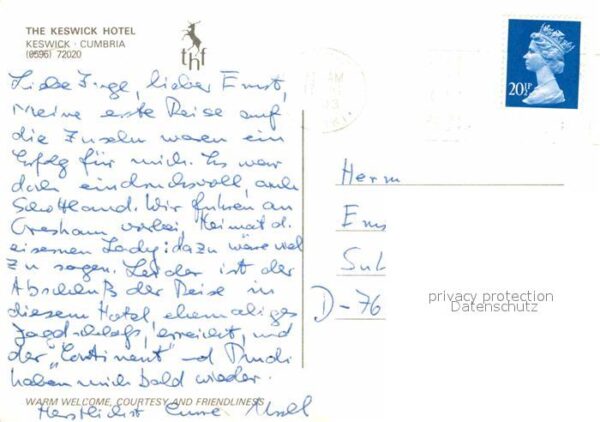 THE KESWICK HOTEL
KESWICK · CUMBRIA
(0596) 72020
thf
Liebe Inge, lieber Ernst,
meine erste Reise auf
die Inseln waren ein
Erfolg für mich. Es war
doch eindrucksvoll, auch
Schottland. Wir fuhren an
Gresham vorbei, Heimat d.
eisernen Lady: dazu wäre viel
zu sagen. Leider ist der
Abschluß der Reise in
diesem Hotel ehemaliges
Jagdschloß, erreicht, und
der "Continent" und
haben mich bald wieder.
WARM WELCOME, COURTESY AND FRIENDLINESS
Herzlichst Eure
AM
20½P
Herrn
Sul
D-76
privacy protection
Datenschutz